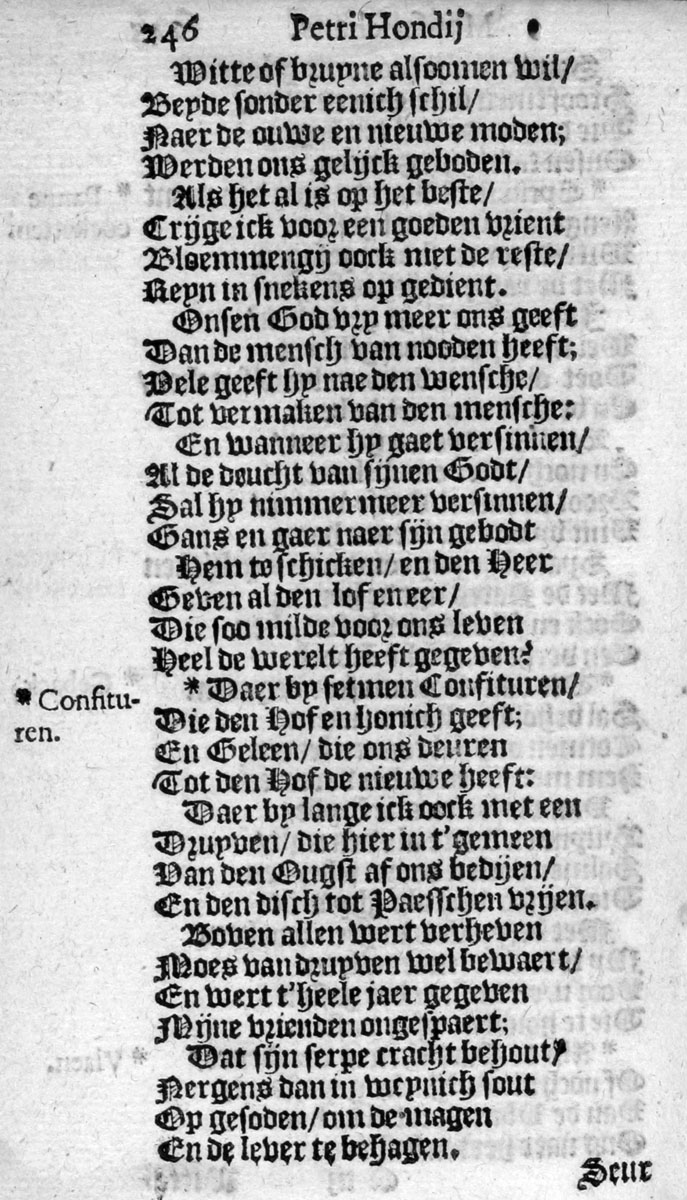 246 Petri Hondij
Witte of bruyne alsoomen wil/
Beyde sonder eenich schil/
Naer de ouwe en nieuwe moden;
Werden ons gelijck geboden.
Als het al is op het beste/
Crijge ick voor een goeden vrient
Bloemmengij oock met de reste/
Reyn in snekens op gedient.
Onsen God vry meer ons geeft
Dan de mensch van nooden heeft;
Vele geeft hy nae den wensche/
Tot vermaken van den mensche:
En wanneer hy gaet versinnen/
Al de deucht van sijnen Godt/
Sal hy nimmermeer versinnen/
Gans en gaer naer sijn gebodt
Hem te schicken/ en den Heer
Geven al den lof en eer/
Die soo milde voor ons leven
Heel de werelt heeft gegeven?
* Daer by setmen Confituren/
* Confitu-
ren.
Die den Hof en honich geeft;
En Geleen/ die ons deuren
Tot den Hof de nieuwe heeft:
Daer by lange ick oock met een
Druyven/ die hier in t'gemeen
Van den Ougst af ons bedijen/
En den disch tot Paesschen vrijen.
Boven allen wert verheven
Moes van druyven wel bewaert/
En wert t'heele jaer gegeven
Mijne vrienden ongespaert;
Dat sijn serpe cracht behout/
Nergens dan in weynich sout
Op gesoden/ om de magen
En de lever te behagen.
Seur